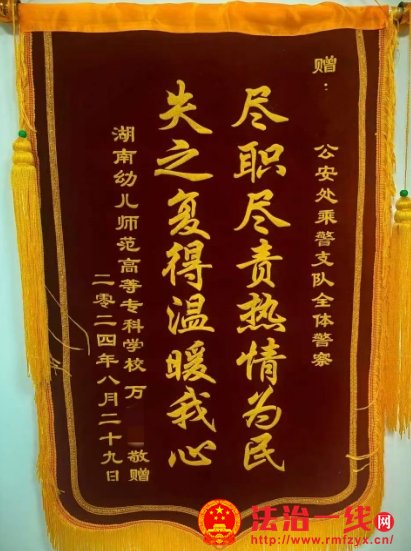 赠：
公安处乘警支队全体警察
尽职尽责热情为民
失之复得温暖我心
湖南幼儿师范高等专科学校 万 敬赠
二零二四年八月二十九日
法治一线网
www.rmfzyx.cn/